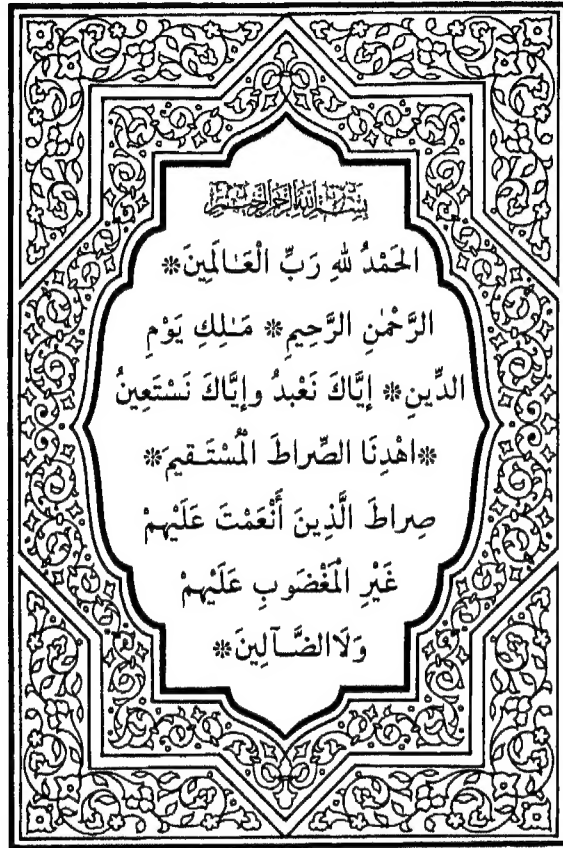 بِسْمِ اللهِ الرَّحْمٰنِ الرَّحِيمِ
الحَمْدُ للهِ رَبِّ الْعَـٰالَمِينَ❊
الرَّحْمٰنِ الرَّحِيمِ❊ مَـٰلِكِ يَوْمِ
الدِّينِ❊ إيَّاكَ نَعْبدُ وإيَّاكَ نَسْتَعِينُ
❊اهْدِنَا الصِّراطَ الْمُسْتَـقيمَ❊
صِراطَ الَّذِينَ أَنْعَمْتَ عَلَيْهِمْ
غَيْرِ الْمَغْضَوبِ عَلَيْهِمْ
وَلَاالضَّـآلِينَ❊